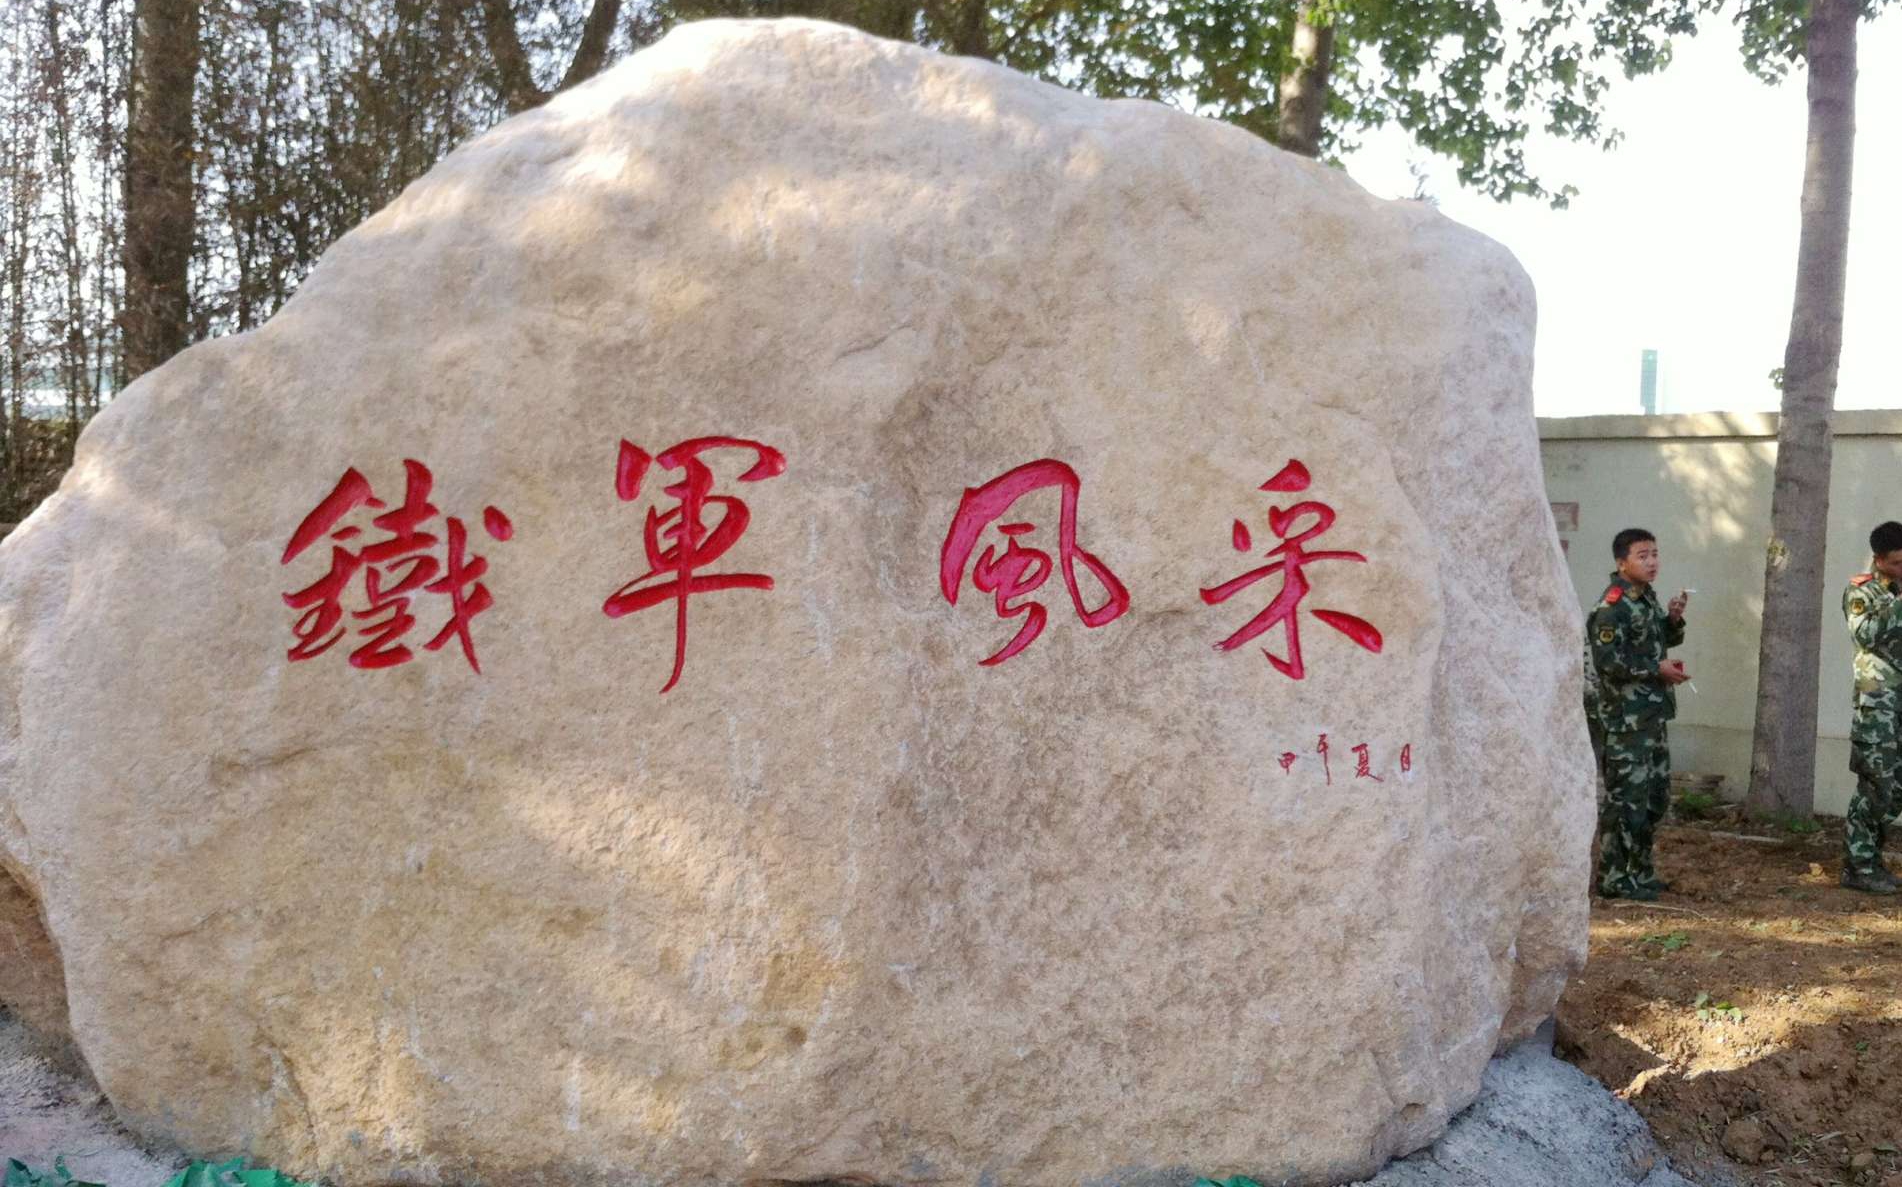 鐵軍風采
甲午夏月